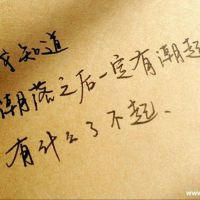 才知道
潮落之后一定有潮起
有什么了不起.
www.